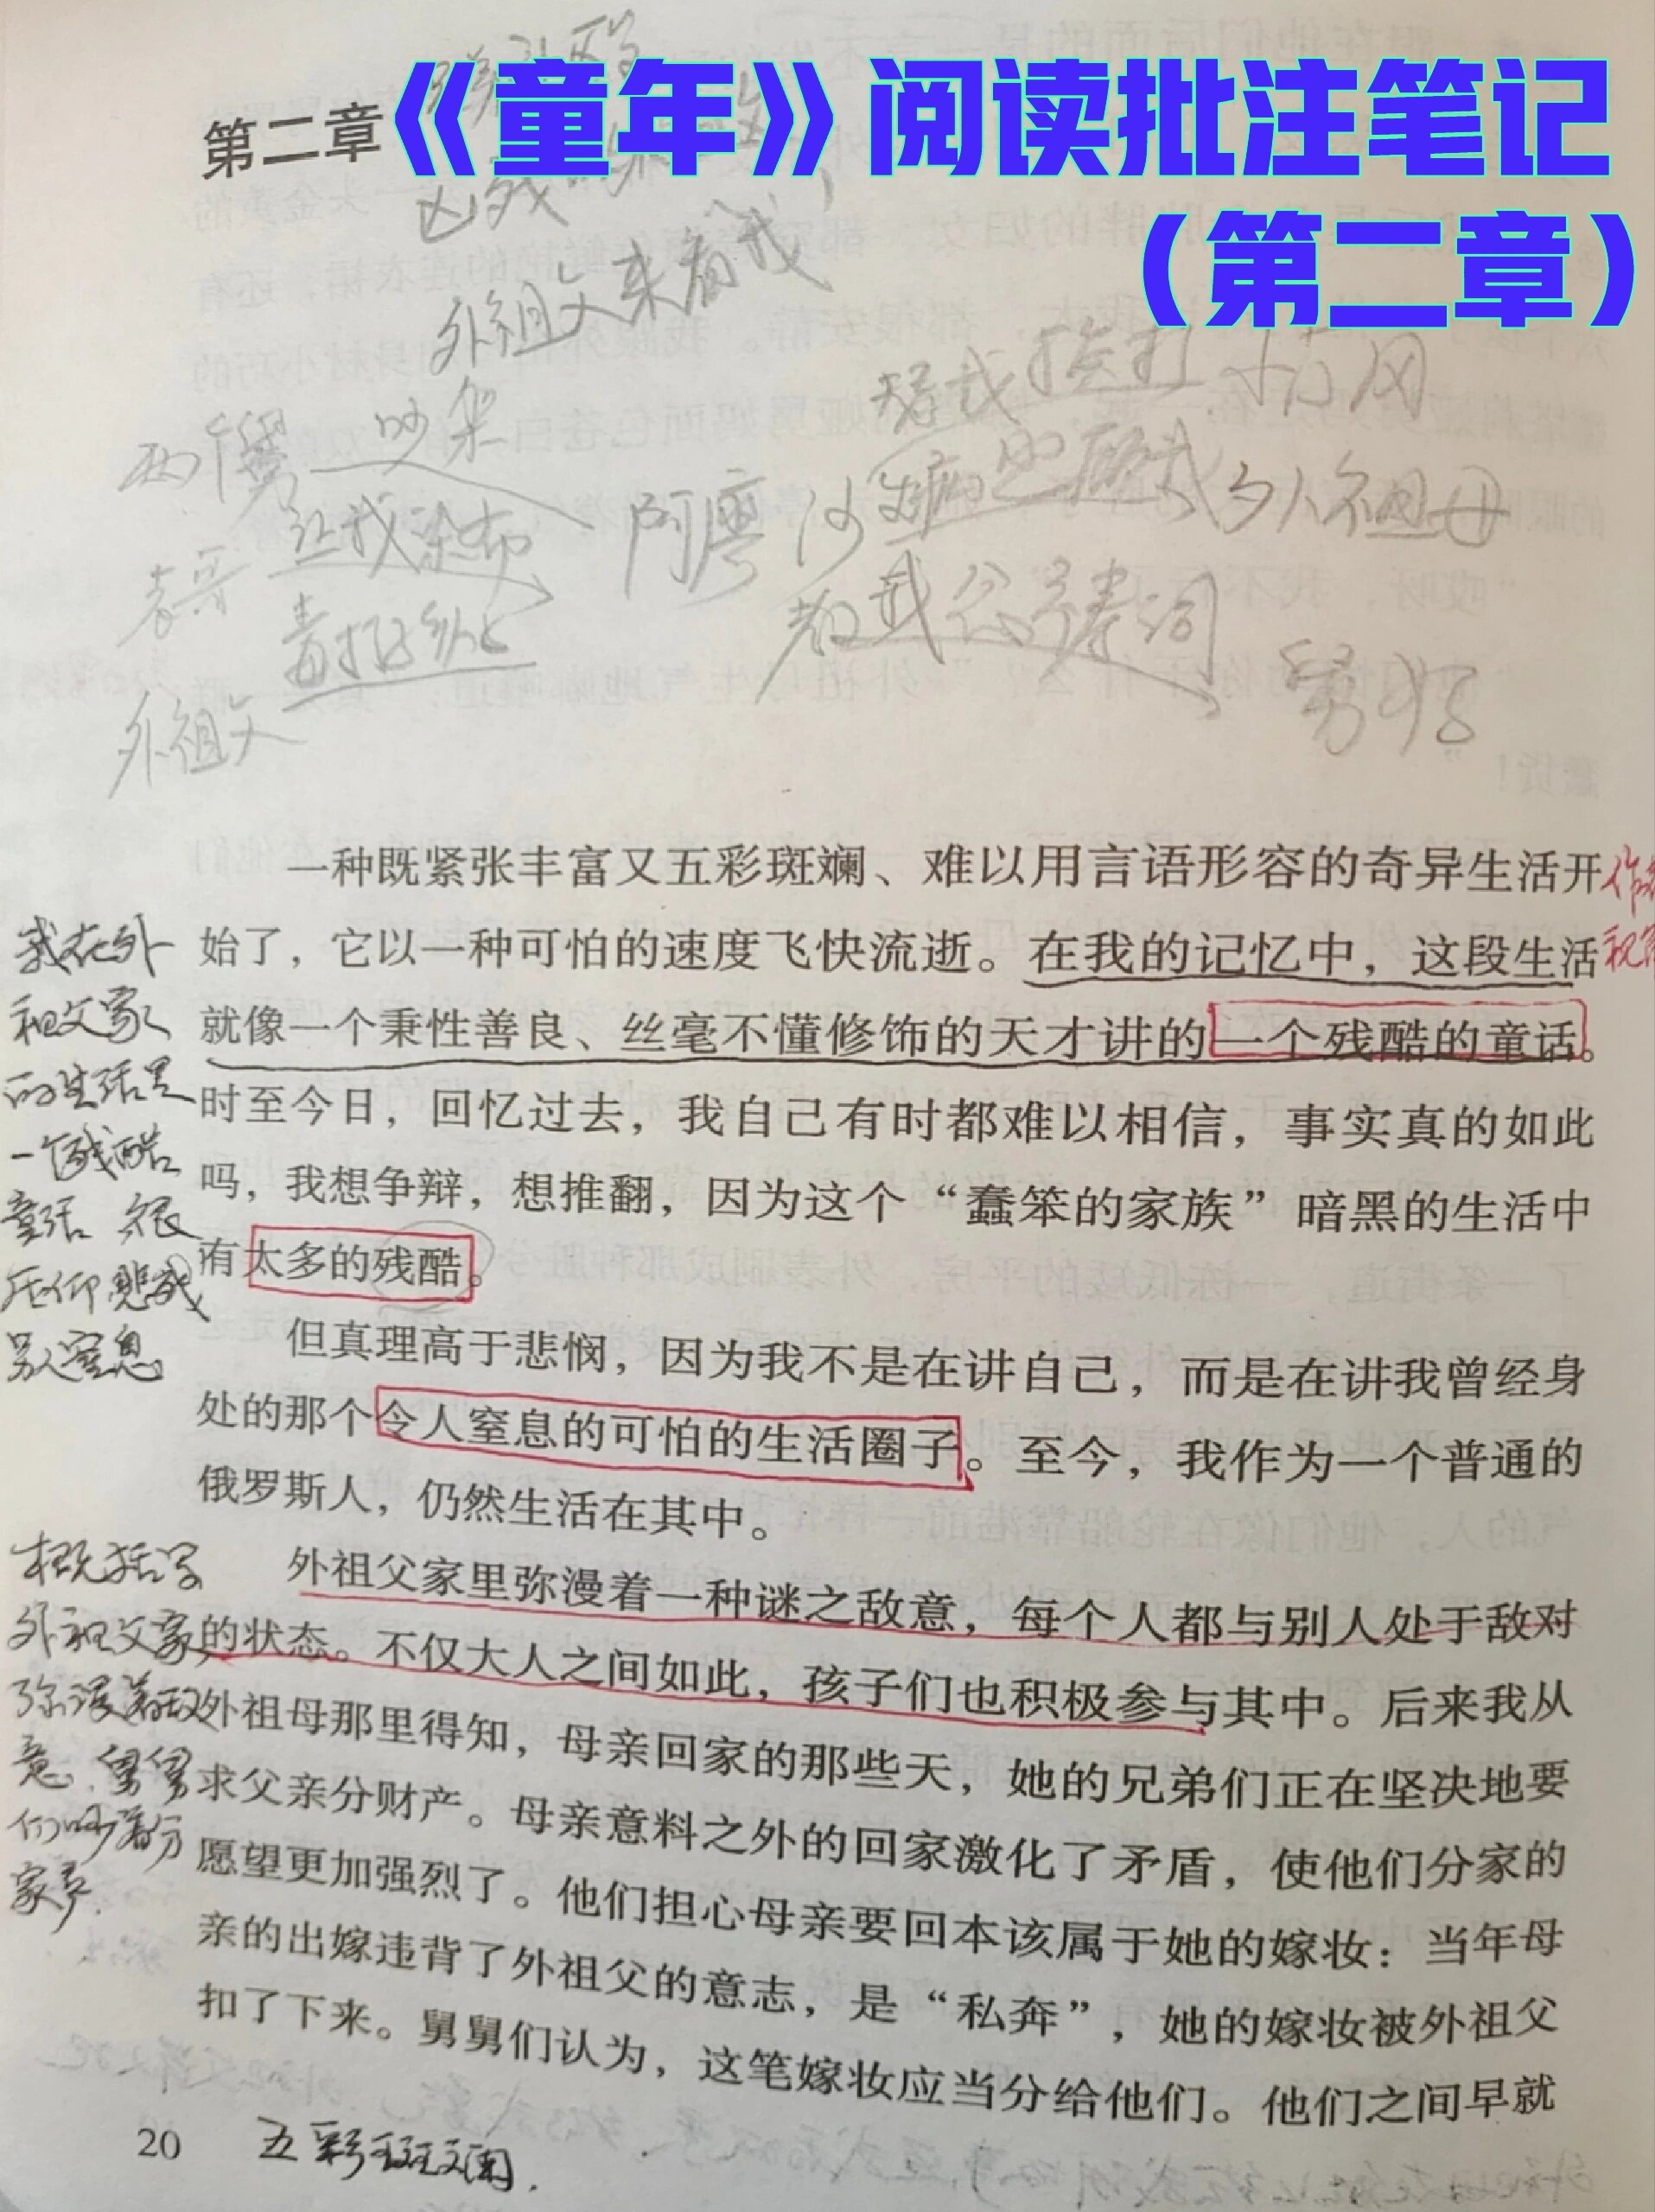 《童年》阅读批注笔记
（第二章）
第二章
外祖父来看我
替我挨打 小茨冈
两个舅 吵架
让我染布
阿廖沙
外祖母
表哥
毒打
教我念祷词
外祖父
舅舅
一种既紧张丰富又五彩斑斓、难以用言语形容的奇异生活开
始了，它以一种可怕的速度飞快流逝。在我的记忆中，这段生活
就像一个秉性善良、丝毫不懂修饰的天才讲的一个残酷的童话。
时至今日，回忆过去，我自己有时都难以相信，事实真的如此
吗，我想争辩，想推翻，因为这个“蠢笨的家族”暗黑的生活中
有太多的残酷。
但真理高于悲悯，因为我不是在讲自己，而是在讲我曾经身
处的那个令人窒息的可怕的生活圈子。至今，我作为一个普通的
俄罗斯人，仍然生活在其中。
外祖父家里弥漫着一种谜之敌意，每个人都与别人处于敌对
的状态。不仅大人之间如此，孩子们也积极参与其中。后来我从
外祖母那里得知，母亲回家的那些天，她的兄弟们正在坚决地要
求父亲分财产。母亲意料之外的回家激化了矛盾，使他们分家的
愿望更加强烈了。他们担心母亲要回本该属于她的嫁妆：当年母
亲的出嫁违背了外祖父的意志，是“私奔”，她的嫁妆被外祖父
扣了下来。舅舅们认为，这笔嫁妆应当分给他们。他们之间早就
我在外
祖父家
的生活是
一个残酷
童话 很
压抑悲哉
另人窒息
概括写
外祖父家
弥漫着敌
意，舅舅
们吵着分
家产.
20
五彩斑斓.